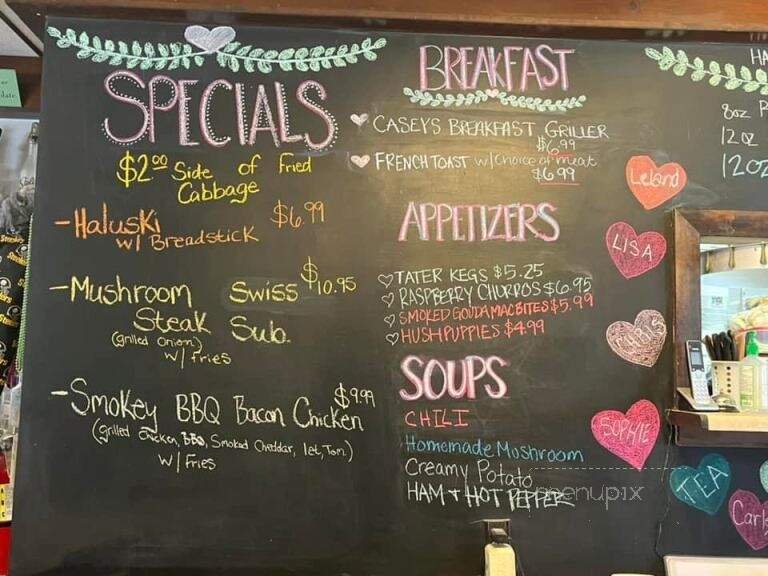 SPECIALS
$2.00 Side of Fried
Cabbage
- Haluski $6.99
w/ Breadstick
- Mushroom Swiss $10.95
Steak Sub.
(grilled Onion)
w/ Fries
- Smokey BBQ Bacon Chicken $9.99
(grilled chicken, BBQ, Smoked Cheddar, let, Tom)
w/ Fries
BREAKFAST
CASEY'S BREAKFAST GRILLER
$6.99
FRENCH TOAST w/choice of meat
$6.99
APPETIZERS
TATER KEGS $5.25
RASPBERRY CHURROS $6.95
SMOKED GOUDA MAC BITES $5.99
HUSHPUPPIES $4.99
SOUPS
CHILI
Homemade Mushroom
Creamy Potato
HAM + HOT PEPPER
menupix
Leland
LISA
CHRIS
SOPHIE
TEA
Carl
HA
8oz
12oz
12oz